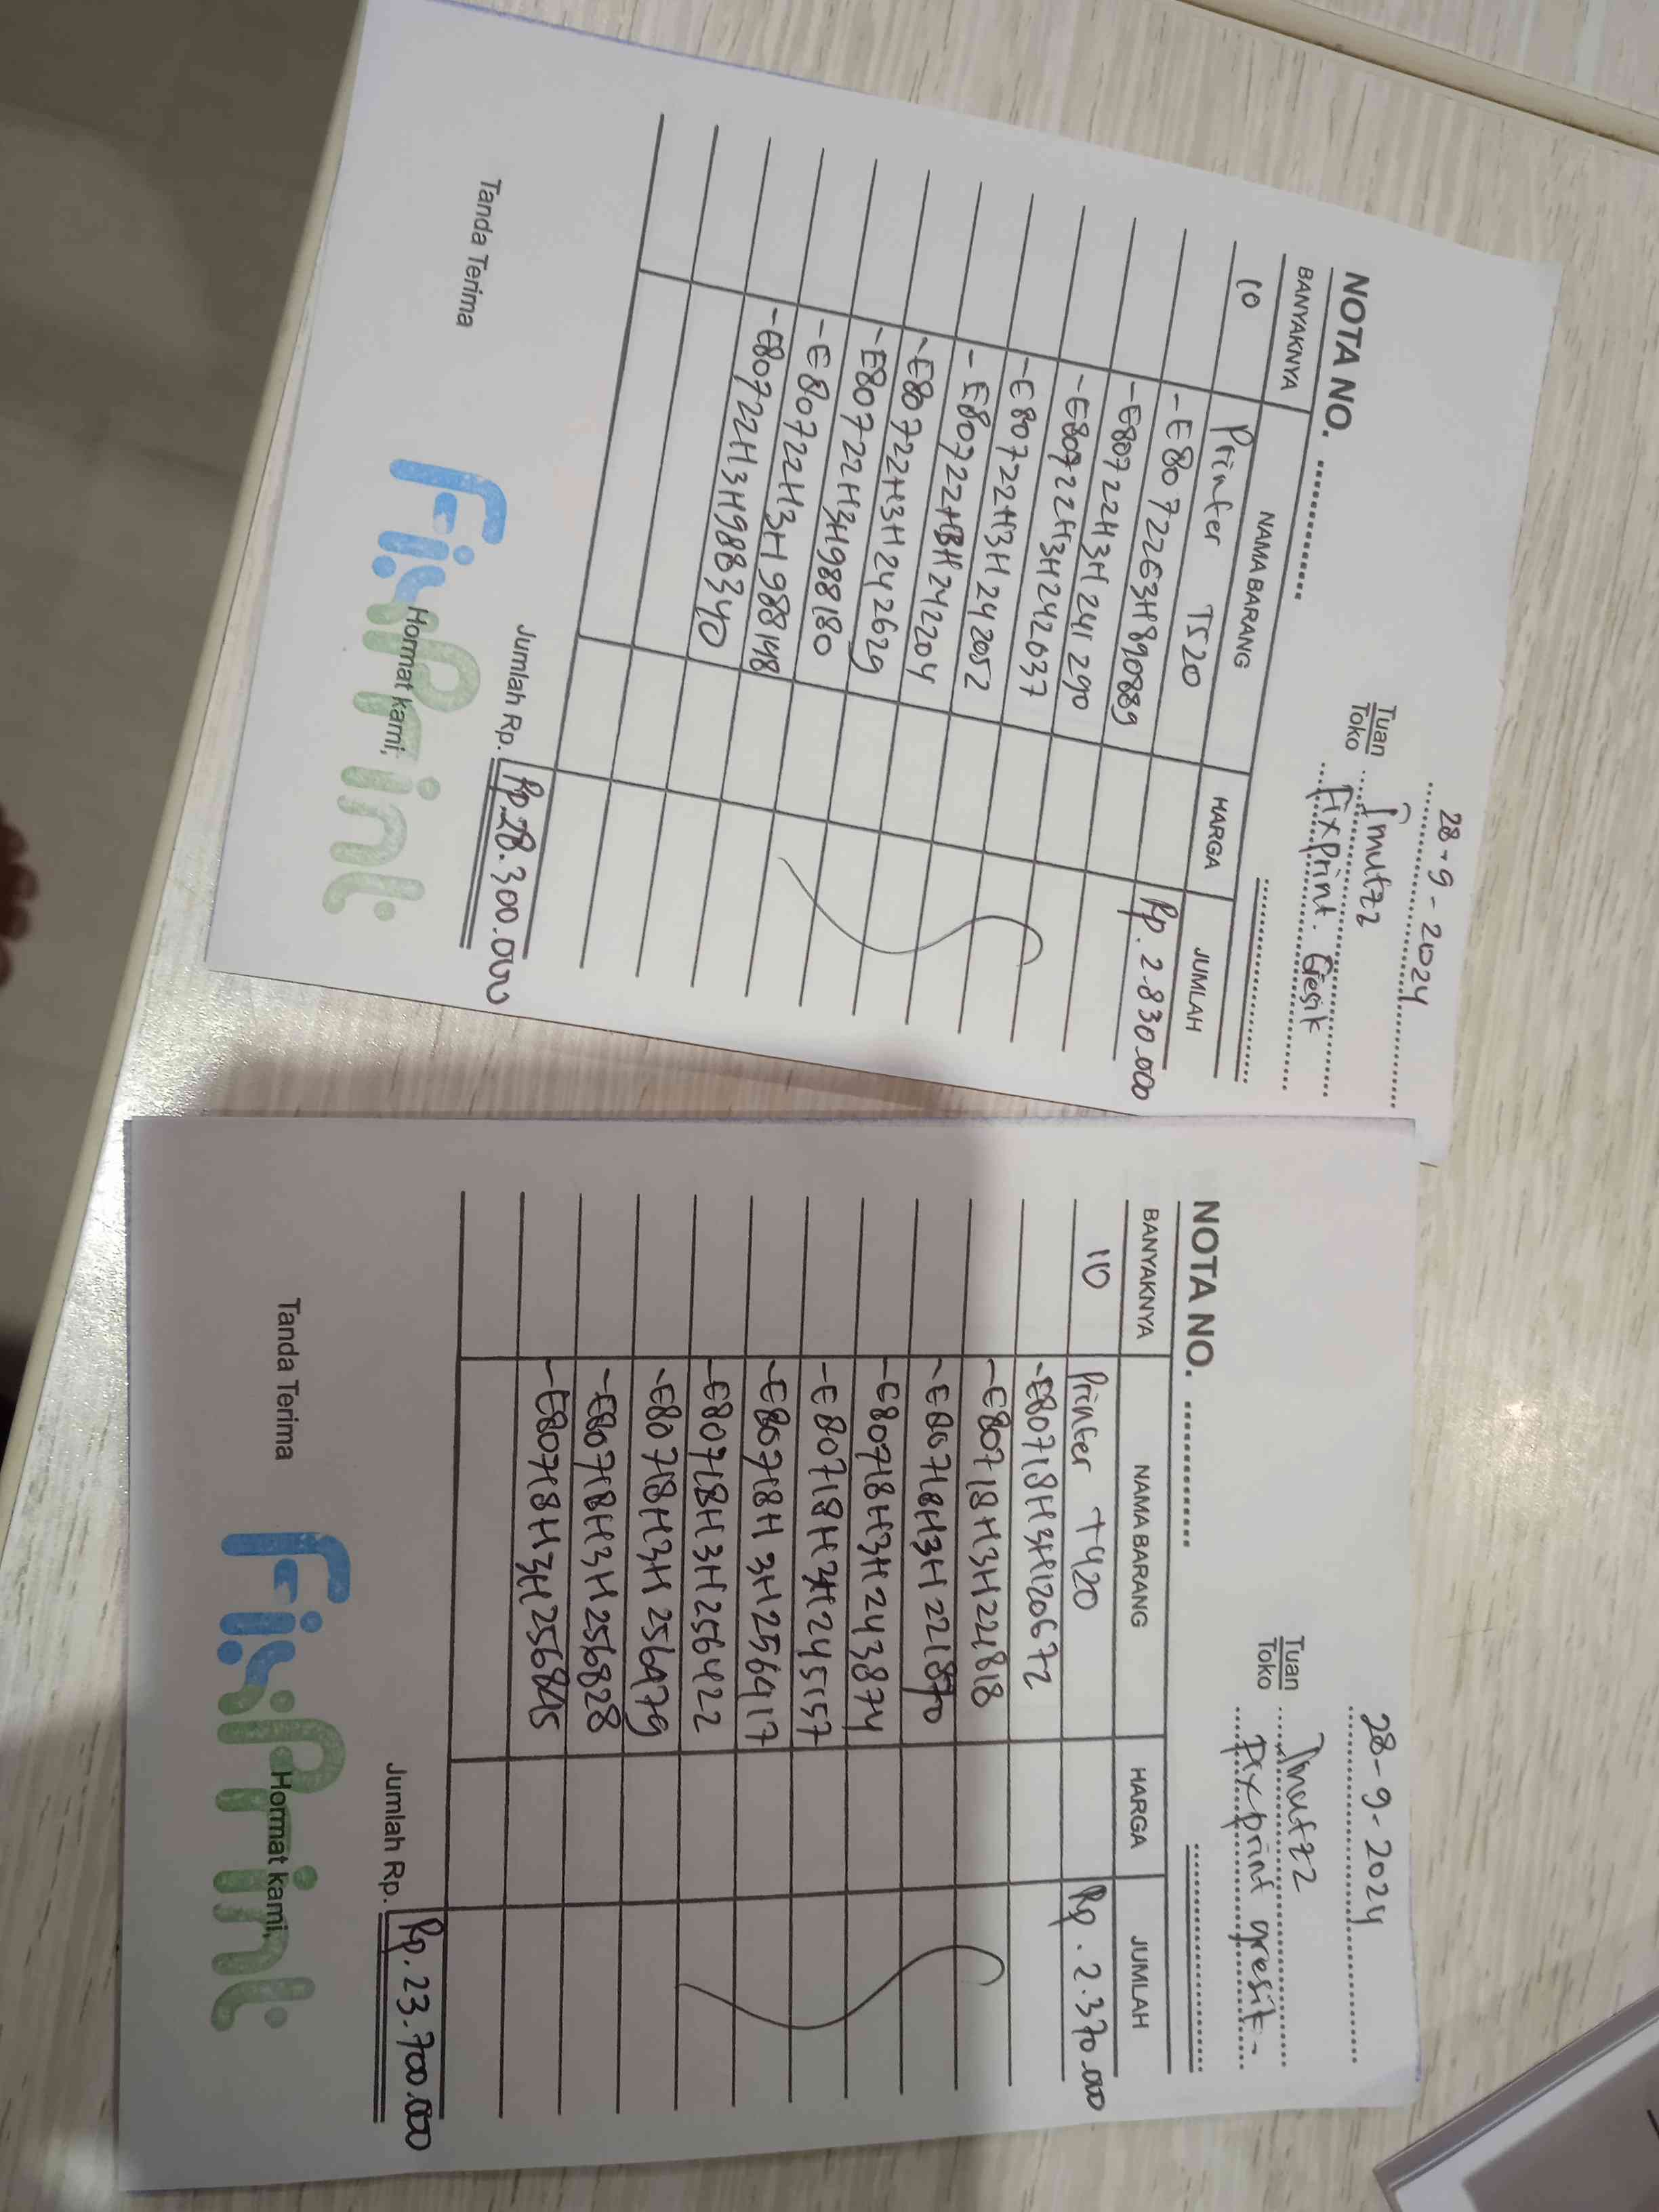 28-9-2024
Tuan
Toko
Imutzz
Fixprint. Gresik
NOTA NO.
BANYAKNYA NAMA BARANG HARGA JUMLAH
10 Printer T520 Rp. 2.830.000
-E8072263H890889
-E80722H3H241290
-E80722H3H242637
-E80722H3H242052
-E80722H3H242204
-E80722H3H242629
-E80722H3H988180
-E80722H3H988148
-E80722H3H988340
Jumlah Rp. Rp.28.300.000
Tanda Terima
Hormat kami,
FixPrint
28-9-2024
Tuan
Toko
Imutzz
Fixprint gresik-
NOTA NO.
BANYAKNYA NAMA BARANG HARGA JUMLAH
10 Printer T420 Rp. 2.370.000
-E80718H3H120672
-E80718H3H221818
-E80718H3H221870
-E80718H3H243874
-E80718H3H245157
-E80718H3H256417
-E80718H3H256422
-E80718H3H256479
-E80718H3H256828
-E80718H3H256845
Jumlah Rp. Rp. 23.700.000
Tanda Terima
Hormat kami,
FixPrint